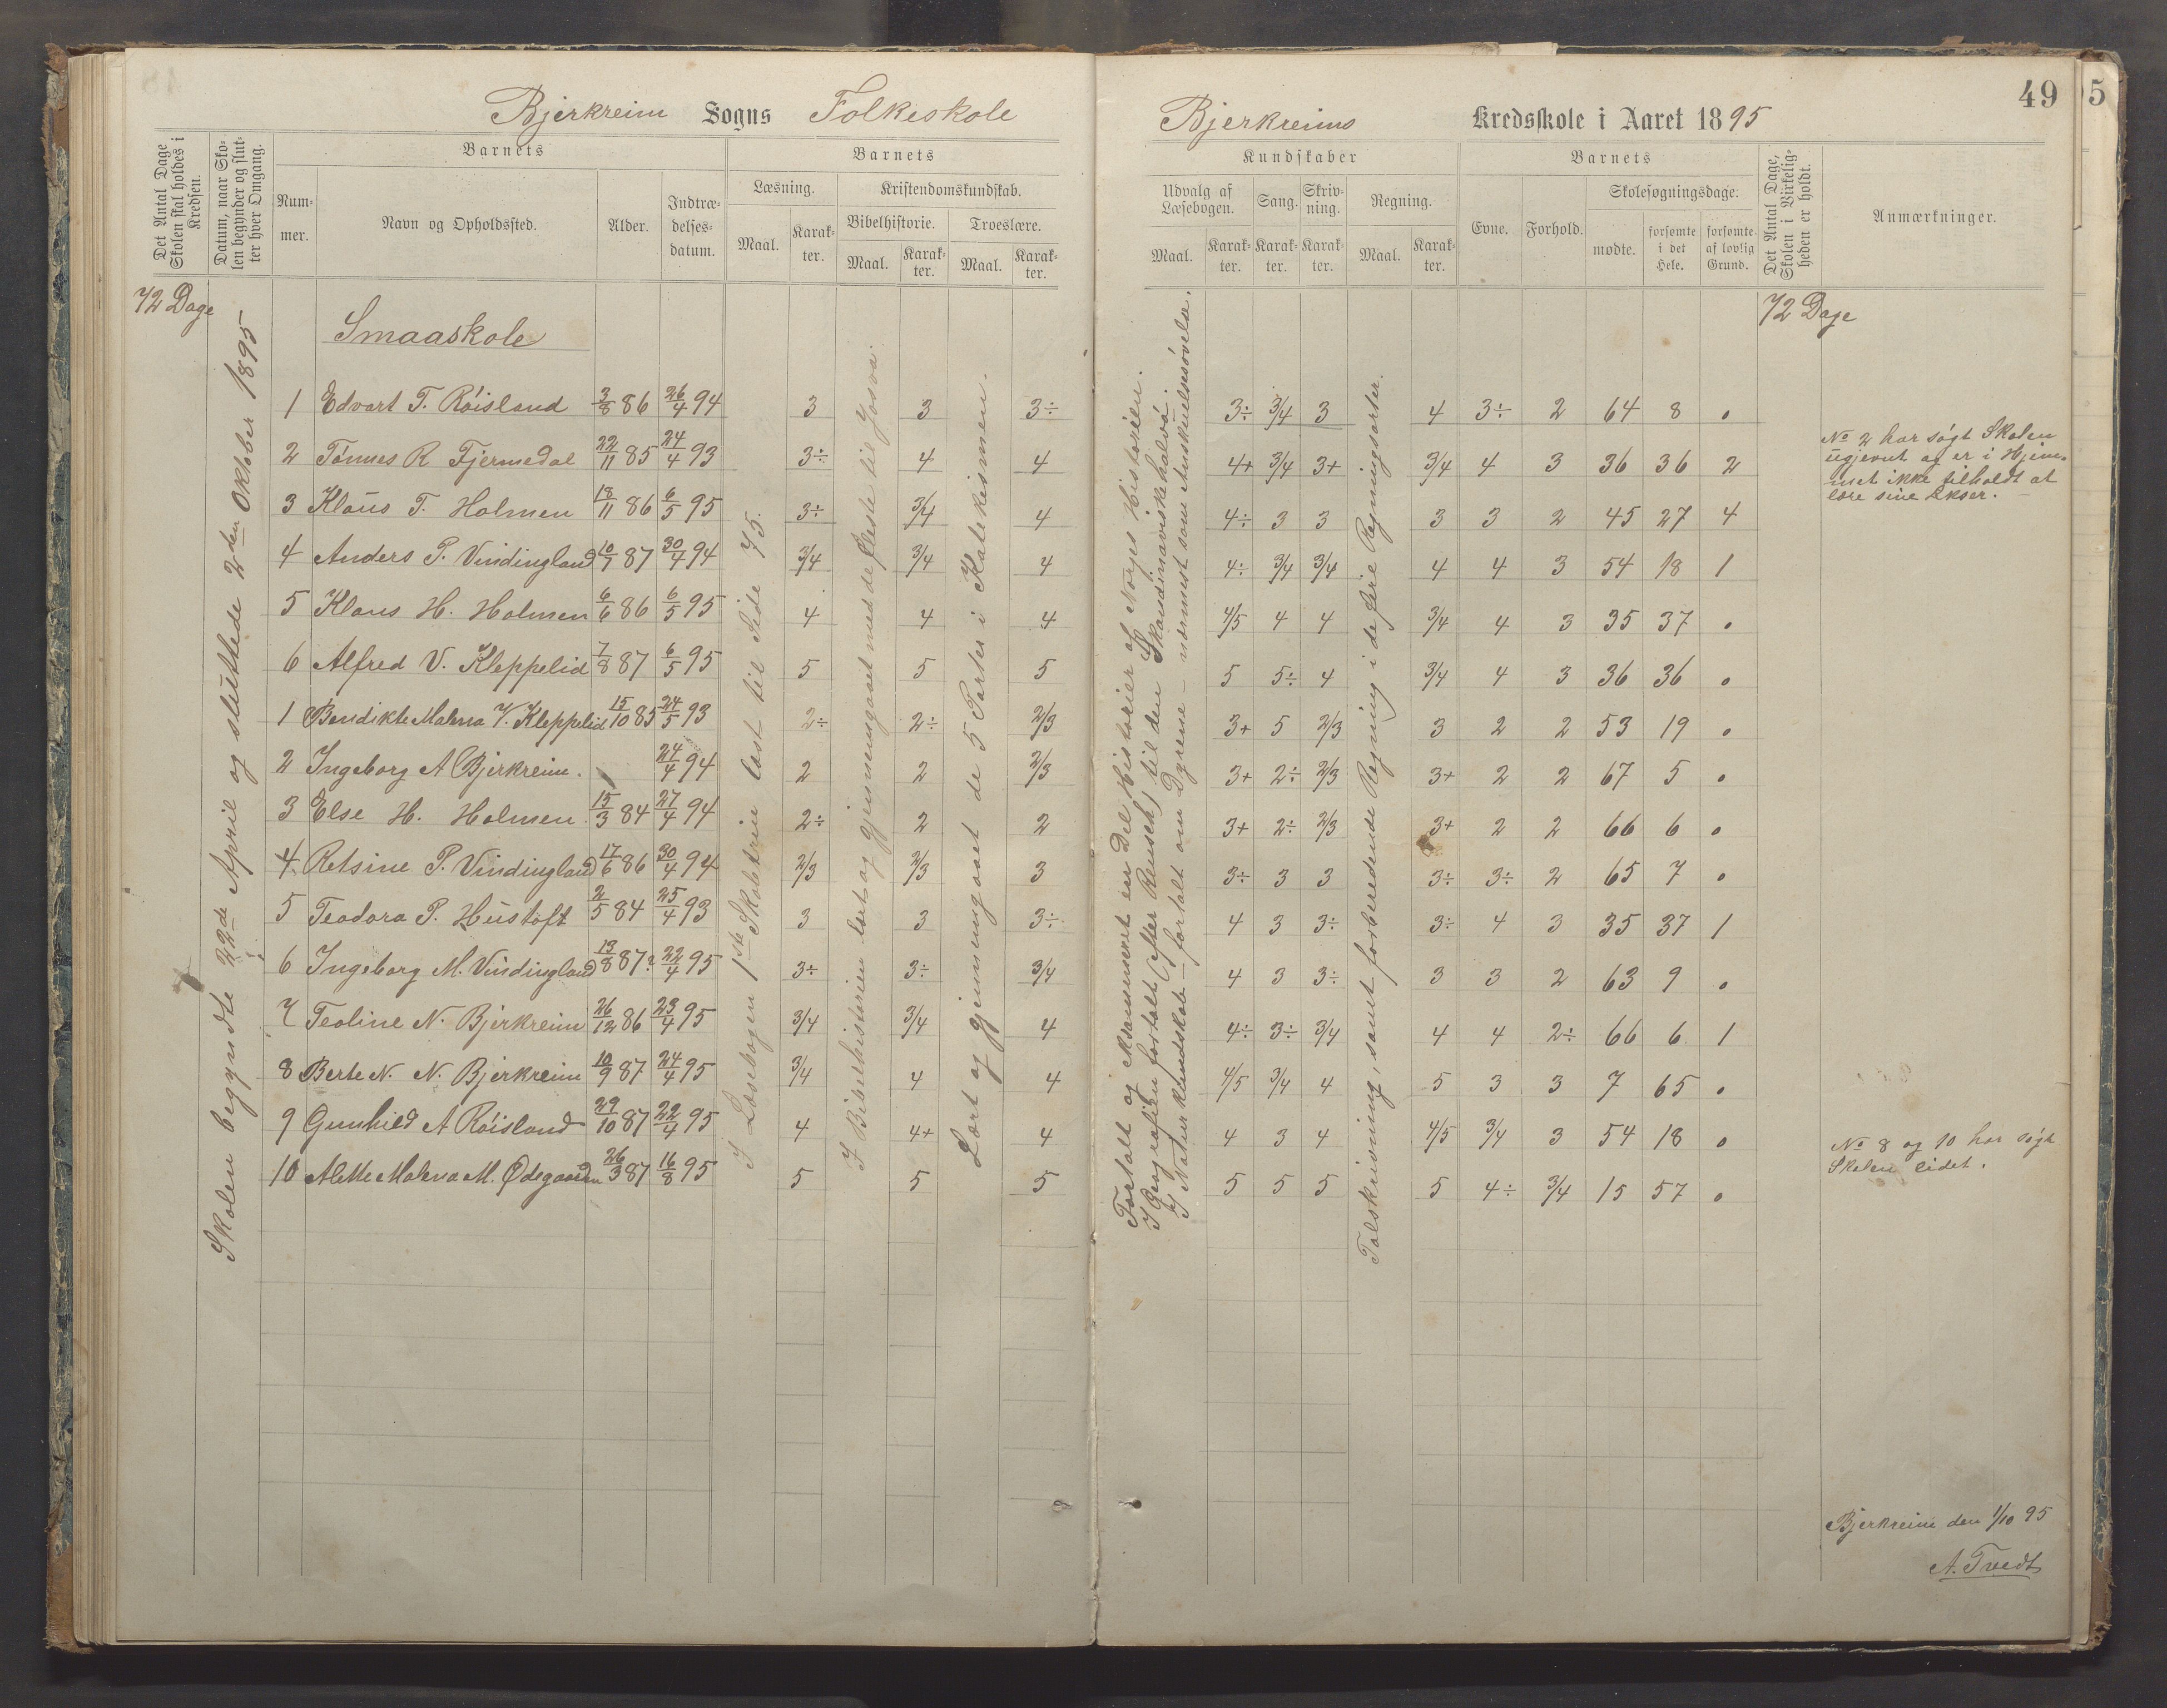 Bjerkreim Sogns Folkeskole
Bjerkreims Kredsskole i Aaret 1895
49
5
Det Antal Dage Skolen skal holdes i Kredsen.
Datum, naar Skolen begynder og slutter hver Omgang.
Barnets
Nummer.
Navn og Opholdssted.
Alder.
Indtrædelsesdatum.
Barnets
Læsning.
Maal.
Karakter.
Kristendomskundskab.
Bibelhistorie.
Maal.
Karakter.
Troeslære.
Maal.
Karakter.
Kundskaber
Udvalg af Læsebogen.
Maal.
Karakter.
Sang.
Karakter.
Skrivning.
Karakter.
Regning.
Maal.
Karakter.
Barnets
Evne.
Forhold.
Skolesøgningsdage.
mødte.
forsømte i det Hele.
forsømte af lovlig Grund.
Det Antal Dage, Skolen i Virkeligheden er holdt.
Anmærkninger.
72 Dage
72 Dage
Smaaskole
Skolen begyndte 22de April og sluttede 2den Oktober 1895
I Læsebogen 1ste Skoletrin læst til Side 75.
I Bibelhistorien lært og gjennemgaaet med de fleste til Josva.
Lært og gjennemgaaet de 5 Parter i Katekismen.
Fortalt og eksamineret en Del Historier af Norges Historien.
I Geografien fortalt (efter Reusch) til den Skandinaviske halvø.
I Naturkundskab – fortalt om Dyrene – nærmest som Anskuelsesøvelse.
Talskrivning, samt forberedende Regning i de fire Regningsarter.
1 Edvart T. Röisland 3/8 86 26/4 94 3 3 3÷ 3÷ 3/4 3 4 3÷ 2 64 8 0
2 Tönnes R Fjermedal 22/11 85 24/4 93 3÷ 4 4 4+ 3/4 3+ 3/4 4 3 36 36 2
3 Klaus T. Holmen 18/11 86 6/5 95 3÷ 3/4 4 4÷ 3 3 3 3 2 45 27 4
4 Anders P. Vindingland 10/7 87 30/4 94 3/4 3/4 4 4÷ 3/4 3/4 4 4 3 54 18 1
5 Klaus H. Holmen 6/6 86 6/5 95 4 4 4 4/5 4 4 3/4 4 3 35 37 0
6 Alfred V. Kleppelid 7/8 87 6/5 95 5 5 5 5 5÷ 4 3/4 4 3 36 36 0
1 Bendikte Malena V. Kleppelid 15/10 85 24/5 93 2÷ 2÷ 2/3 3+ 5 2/3 3 2 2 53 19 0
2 Ingeborg A Bjerkreim. 24/4 94 2 2 2/3 3+ 2÷ 2/3 3+ 2 2 67 5 0
3 Else H. Holmen 15/3 84 27/4 94 2÷ 2 2 3+ 2÷ 2/3 3+ 2 2 66 6 0
4 Retsine P. Vindingland 17/6 86 30/4 94 2/3 2/3 3 3÷ 3 3 3÷ 3÷ 2 65 7 0
5 Teodora P. Hustoft 2/5 84 25/4 93 3 3 3÷ 4 3 3÷ 3÷ 4 3 35 37 1
6 Ingeborg M. Vindingland 13/8 87? 22/4 95 3÷ 3÷ 3/4 4 3 3÷ 3 3 2 63 9 0
7 Teoline N. Bjerkreim 26/12 86 23/4 95 3/4 3/4 4 4÷ 3÷ 3/4 4 4 2÷ 66 6 1
8 Berte N. N. Bjerkreim 10/9 87 24/4 95 3/4 4 4 4/5 3/4 4 5 3 3 7 65 0
9 Gunhild A Röisland 29/10 87 22/4 95 4 4+ 4 4 3 4 4/5 3/4 3 54 18 0
10 Alette Malena M. Ødegaarden 26/3 87 16/8 95 5 5 5 5 5 5 5 4÷ 3/4 15 57 0
No 2 har søgt Skolen
ugjevnt og er i Hjem-
met ikke tilholdt at
lære sine Lekser.
No 8 og 10 har søgt
Skolen lidet.
Bjerkreim den 1/10 95
A. Tvedt